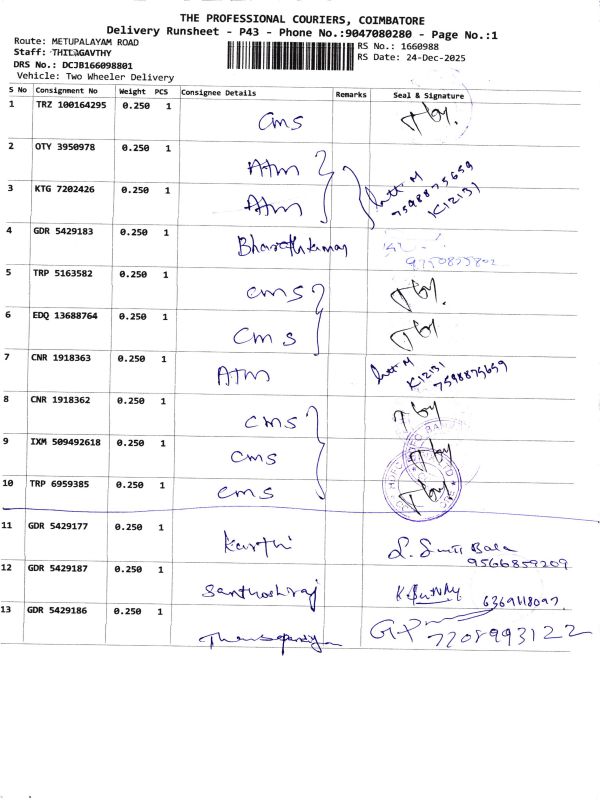 THE PROFESSIONAL COURIERS, COIMBATORE
Delivery Runsheet - P43 - Phone No.:9047080280 - Page No.:1
Route: METUPALAYAM ROAD
RS No.: 1660988
Staff: THILAGAVTHY
RS Date: 24-Dec-2025
DRS No.: DCJB166098801
Vehicle: Two Wheeler Delivery
S No Consignment No Weight PCS Consignee Details Remarks Seal & Signature
1 TRZ 100164295 0.250 1 cms
2 OTY 3950978 0.250 1 Atm
7598875659
K12131
3 KTG 7202426 0.250 1 Atm
4 GDR 5429183 0.250 1 Bharathkumar
5 TRP 5163582 0.250 1 cms
6 EDQ 13688764 0.250 1 cms
7 CNR 1918363 0.250 1 Atm K12131
7598875659
8 CNR 1918362 0.250 1 cms
9 IXM 509492618 0.250 1 cms
10 TRP 6959385 0.250 1 cms
11 GDR 5429177 0.250 1 Karthi
9566859209
12 GDR 5429187 0.250 1 Santhoshraj 6369118097
13 GDR 5429186 0.250 1 7708993122